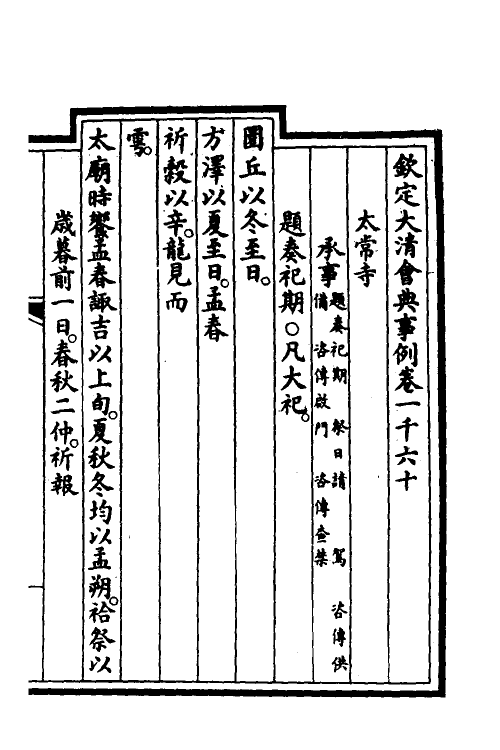 欽定大清會典事例卷一千六十
太常寺
承事題奏祀期　祭日請　駕　咨傳供
備　咨傳啟門　咨傳查禁
題奏祀期○凡大祀。
圜丘以冬至日。
方澤以夏至日。孟春
祈穀以辛。龍見而
雩。
太廟時饗孟春諏吉以上旬。夏秋冬均以孟朔。祫祭以
歲暮前一日。春秋二仲。祈報